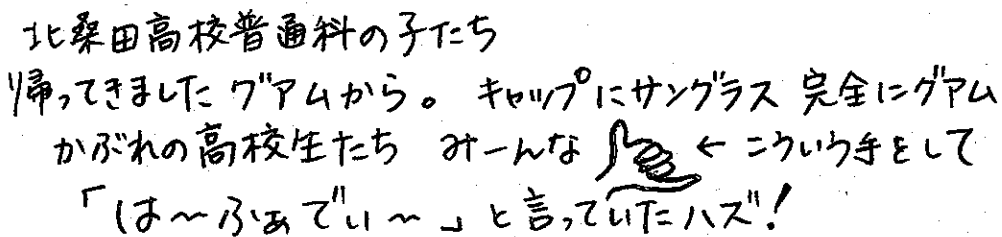 北桑田高校普通科の子たち
帰ってきました グアムから。 キャップにサングラス 完全にグアム
かぶれの高校生たち みーんな ← こういう手をして
「は〜ふぁでぃ〜」と言っていたハズ!